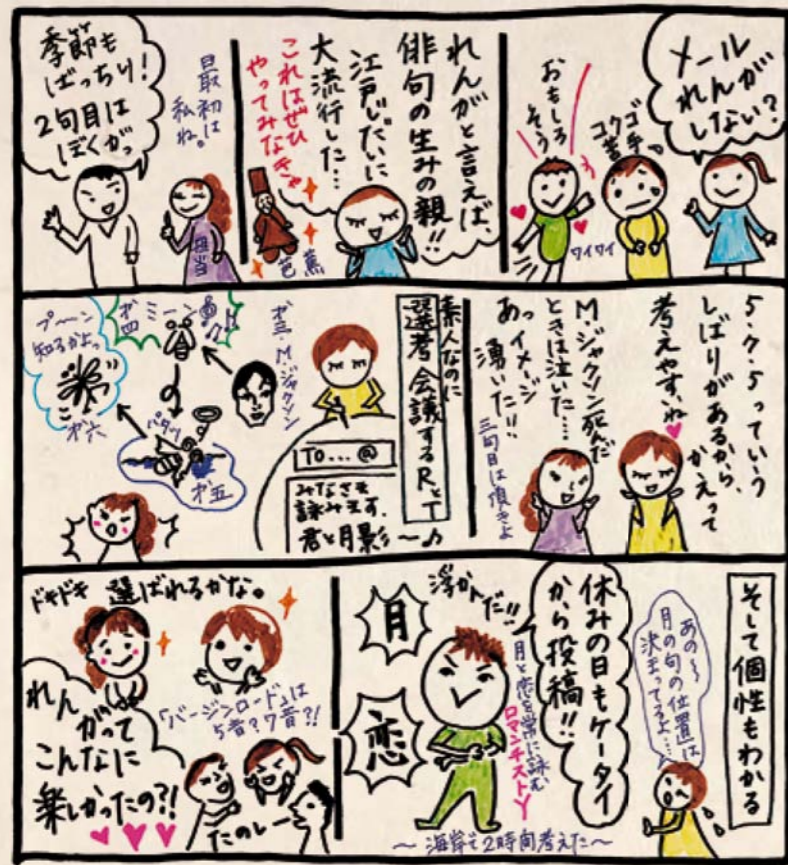 メール
れんが
しない?
コクゴ
苦手。
おもしろ
そう
ワイワイ
れんがと言えば、
俳句の生みの親!!
江戸じだいに
大流行した…
これはぜひ
やってみなきゃ
芭蕉
最初は
私ね。
担当
季節も
ばっちり!
2句目は
ぼくがっ
5・7・5っていう
しばりがあるから、
かえって
考えやすいね
M・ジャクソン死んだ
ときは泣いた…
あっイメージ
湧いた!!
三句目は頂きよ
素人なのに
選考会議するRとT
TO...@
みなさま
詠みます。
君と月影〜♪
才三・M・ジャクソン
才四
ミーン
才五
パタッ
プ〜ン
知るかよっ
才六
そして個性もわかる
あの〜
月の句の位置は
決まってるよ…
休みの日もケータイ
から投稿!!
浮かんだ!!
月
恋
月と恋を常に詠む
ロマンチストY
〜海岸で2時間考えた〜
ドキドキ 選ばれるかな。
「バージンロード」は
5音?7音?!
れん
がって
こんなに
楽しかったの?!
たのしー